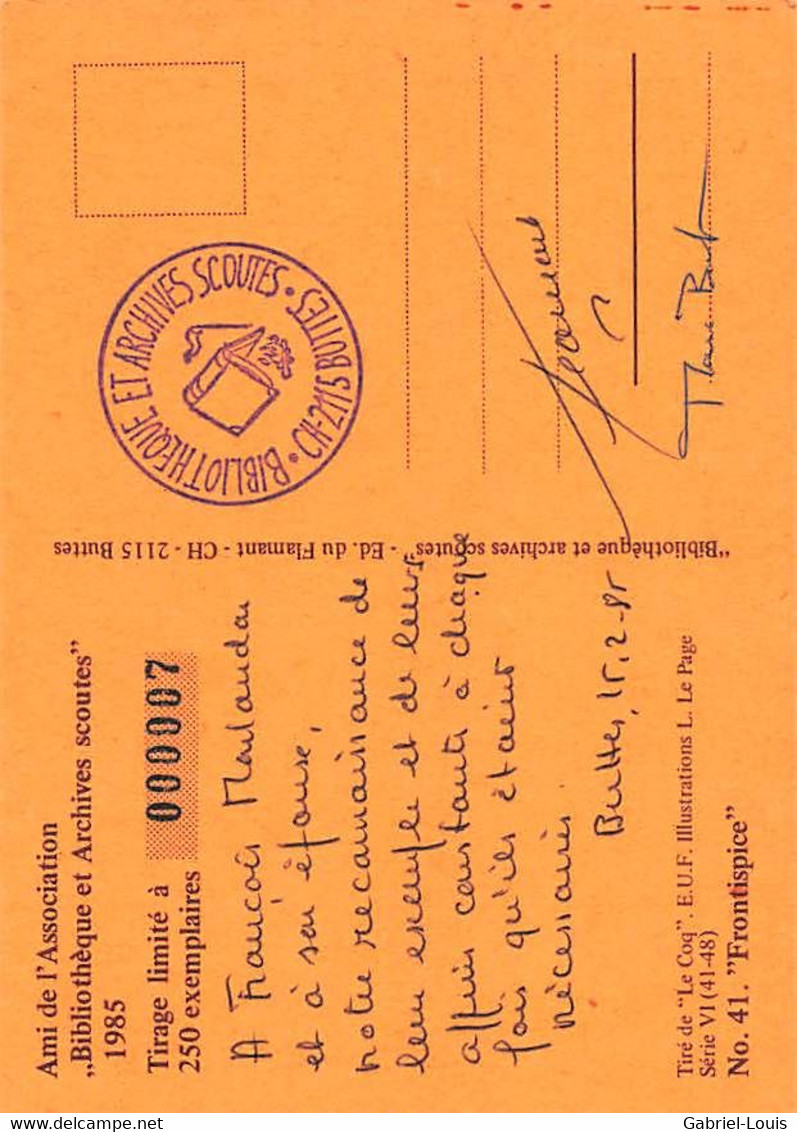 Ami de l'Association
„Bibliothèque et Archives scoutes"
1985
Tirage limité à
250 exemplaires
000007
A François
et à son épouse,
notre reconnaissance de
leur exemple et de leurs
constants à chaque
fois qu'ils étaient
nécessaires.
Buttes, 15.2-85
Tiré de "Le Coq". E.U.F. Illustrations L. Le Page
Série VI (41-48)
No. 41. "Frontispice"
"Bibliothèque et archives scoutes" - Ed. du Flamant - CH - 2115 Buttes
BIBLIOTHEQUE ET ARCHIVES SCOUTES · CH-2115 BUTTES ·
Gabriel-Louis